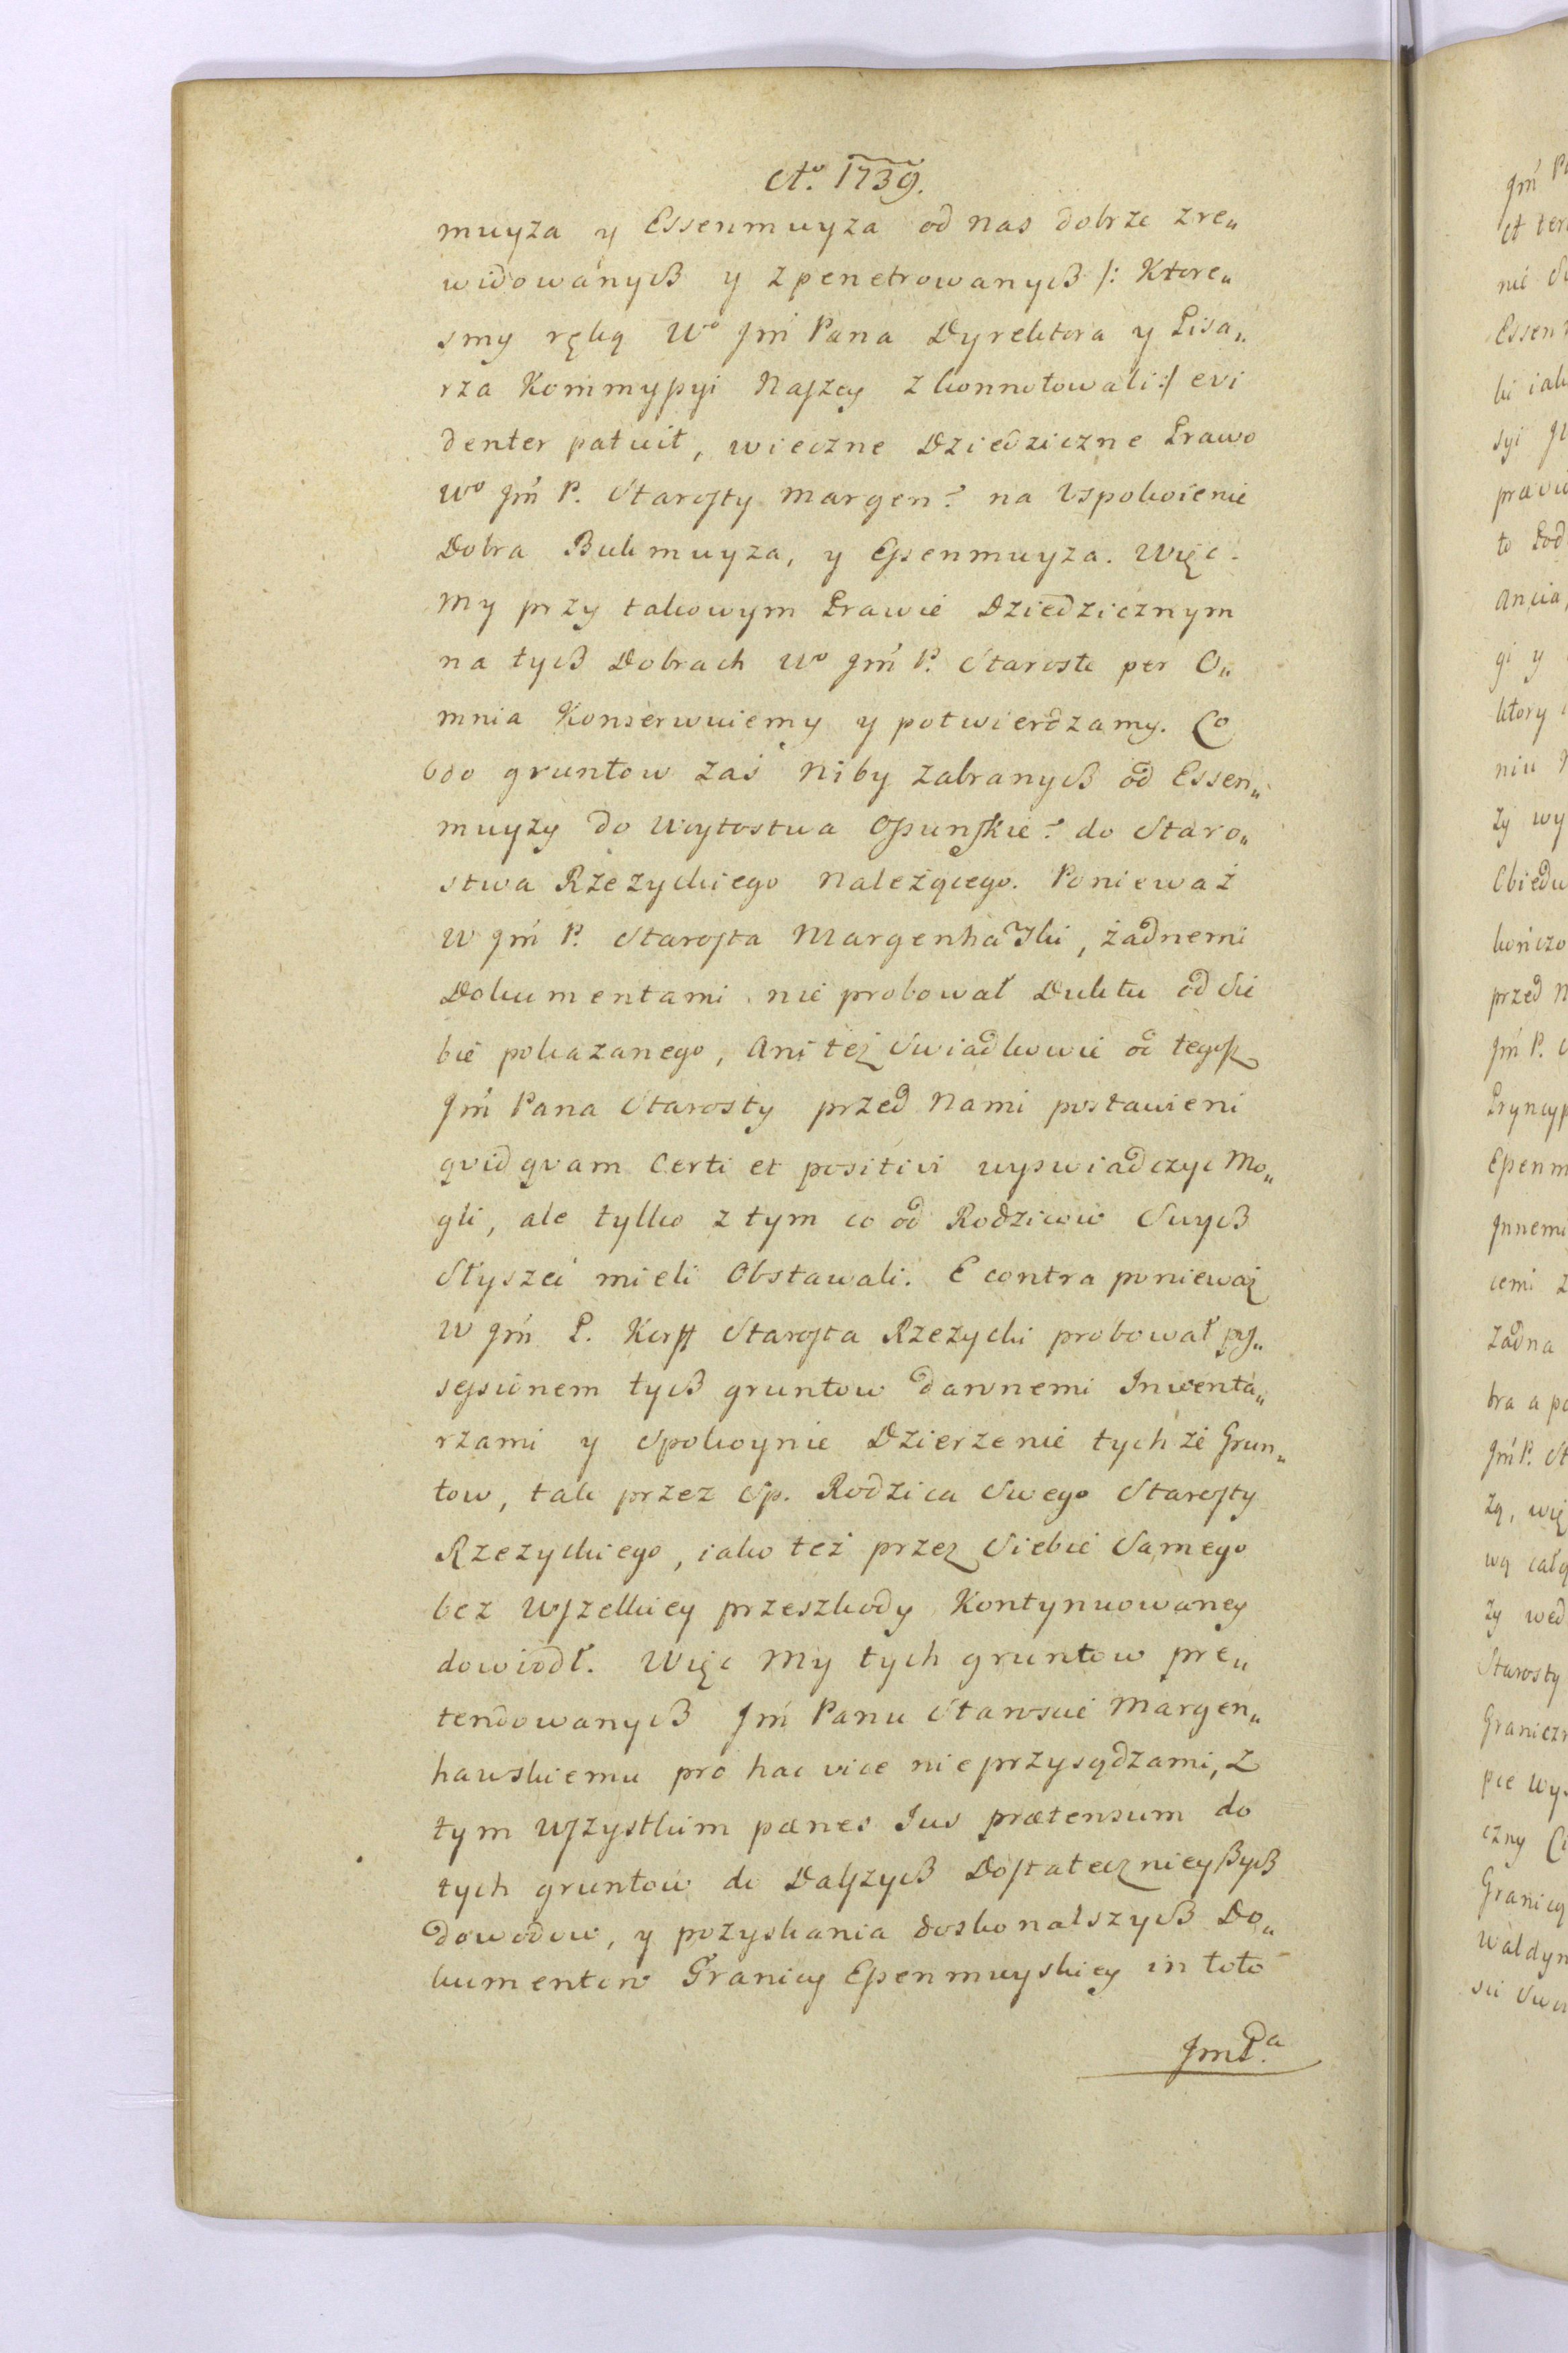 Aº. 1739.
muyza y Essenmuyza od nas dobrze zre„
widowanych y zpenetrowanych /: Ktore„
smy ręką Wº Jm̃ Pana Dyrektora y Pisa„
rza Kommyssyi Naszey zkonnotowali :/ evi
denter patuit, wieczne Dziedziczne Prawo
Wº Jm̃ P. Starosty Margen? na Uspokoienie
Dobra Bukmuyza, y Essenmuyza. Więc
My przy takowym Prawie Dziedzicznym
na tych Dobrach Wº Jm̃ P. Staroste per O„
mnia Konserwuiemy y potwierdzamy. Co
do gruntow zaś niby zabranych od Essen„
muyzy do Woytostwa Ossunskie? do Staro„
stwa Rzezyckiego należącego. Ponieważ
W Jm̃ P. Starosta Margenhauski, żadnemi
Dokumentami nie probował Duktu od Sie
bie pokazanego, Ani też Swiadkowie od tegosz
Jm̃ Pana Starosty przed Nami postawieni
qvidqvam Certi et positivi wyswiadczyc Mo„
gli, ale tylko z tym co od Rodzicow Swych
Słyszeć mieli Obstawali. E contra ponieważ
W Jm̃ P. Korff Starosta Rzezycki probował pos„
sessionem tych gruntow dawnemi Inwenta„
rzami y Spokoynie Dzierzenie tychże Grun„
tow, tak przez Sp. Rodzica Swego Starosty
Rzezyckiego, iako też przez Siebie Samego
bez wszelkiey przeszkody Kontynuowaney
dowiodł. Więc My tych gruntow pre„
tendowanych Jm̃ Panu Staroscie Margen„
hauskiemu pro hac vice nieprzysądzami, z
tym wszystkim pænes Jus prætensum do
tych gruntow do Dalszych Dostatecznieyszych
dowodow, y pozyskania doskonalszych Do„
kumentow Granicy Essenmuyskiey in toto
JmPa.